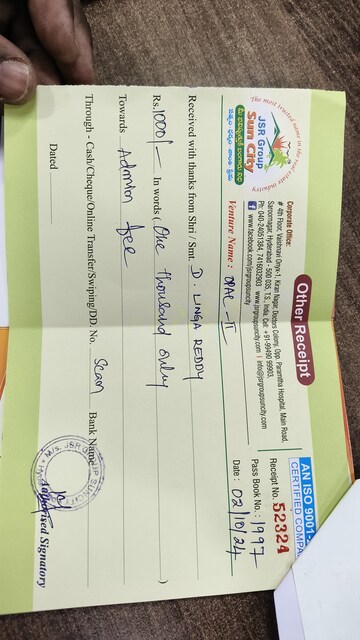 Other Receipt
AN ISO 9001-
CERTIFIED COMPA
The most trusted name in the real estate industry
JSR Group
Sun City
Corporate Office:
# 4th Floor, Vaishnavi Onyx-1, Kiran Nagar, Doctors Colony, Opp. Paramitha Hospital, Main Road,
Saroornagar, Hyderabad - 500 035. T.S. India. Cell: +91-99499 99903.
Ph: 040-24051384, 7416032903 www.jsrgroupsuncity.com I info@jsrgroupsuncity.com
www.facebook.com/jsrgroupsuncity
Receipt No. 52324
Pass Book No.: 1997
Venture Name : OPAL-II
Date : 02/10/24
Received with thanks from Shri / Smt D. LINGA REDDY
Rs. 1000/- In words (One thousand only )
Towards Admison fee
Through - Cash/Cheque/Online Transfer/Swiping/DD. No. Scan Bank Name
Dated
M/s. JSR GROUP SUN CITY
Authorised Signatory